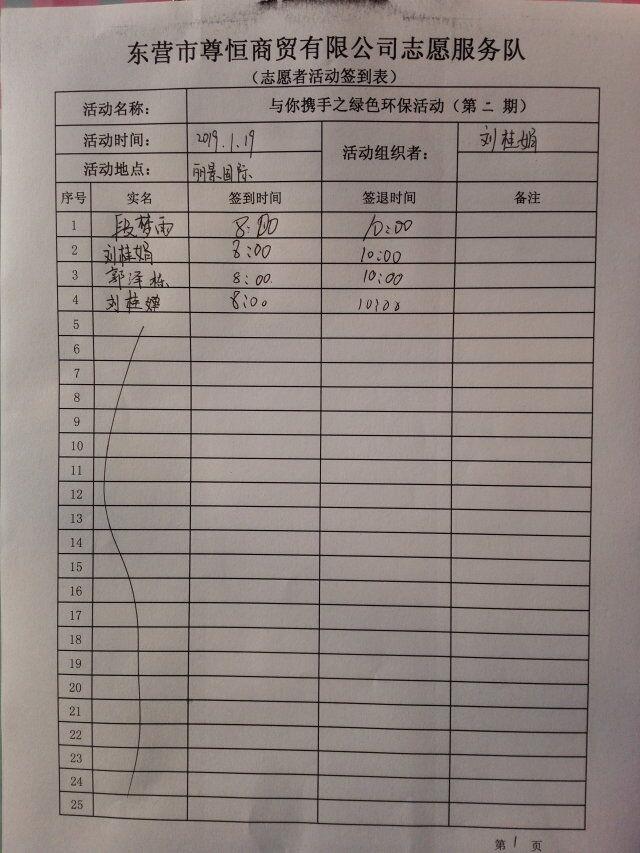 东营市尊恒商贸有限公司志愿服务队
（志愿者活动签到表）
活动名称： 与你携手之绿色环保活动（第 二 期）
活动时间： 2019.1.19 活动组织者： 刘桂娟
活动地点： 丽景国际
序号 实名 签到时间 签退时间 备注
1 段梦雨 8:00 10:00
2 刘桂娟 8:00 10:00
3 郭泽栋 8:00 10:00
4 刘桂 8:00 10:00
5
6
7
8
9
10
11
12
13
14
15
16
17
18
19
20
21
22
23
24
25
第 1 页